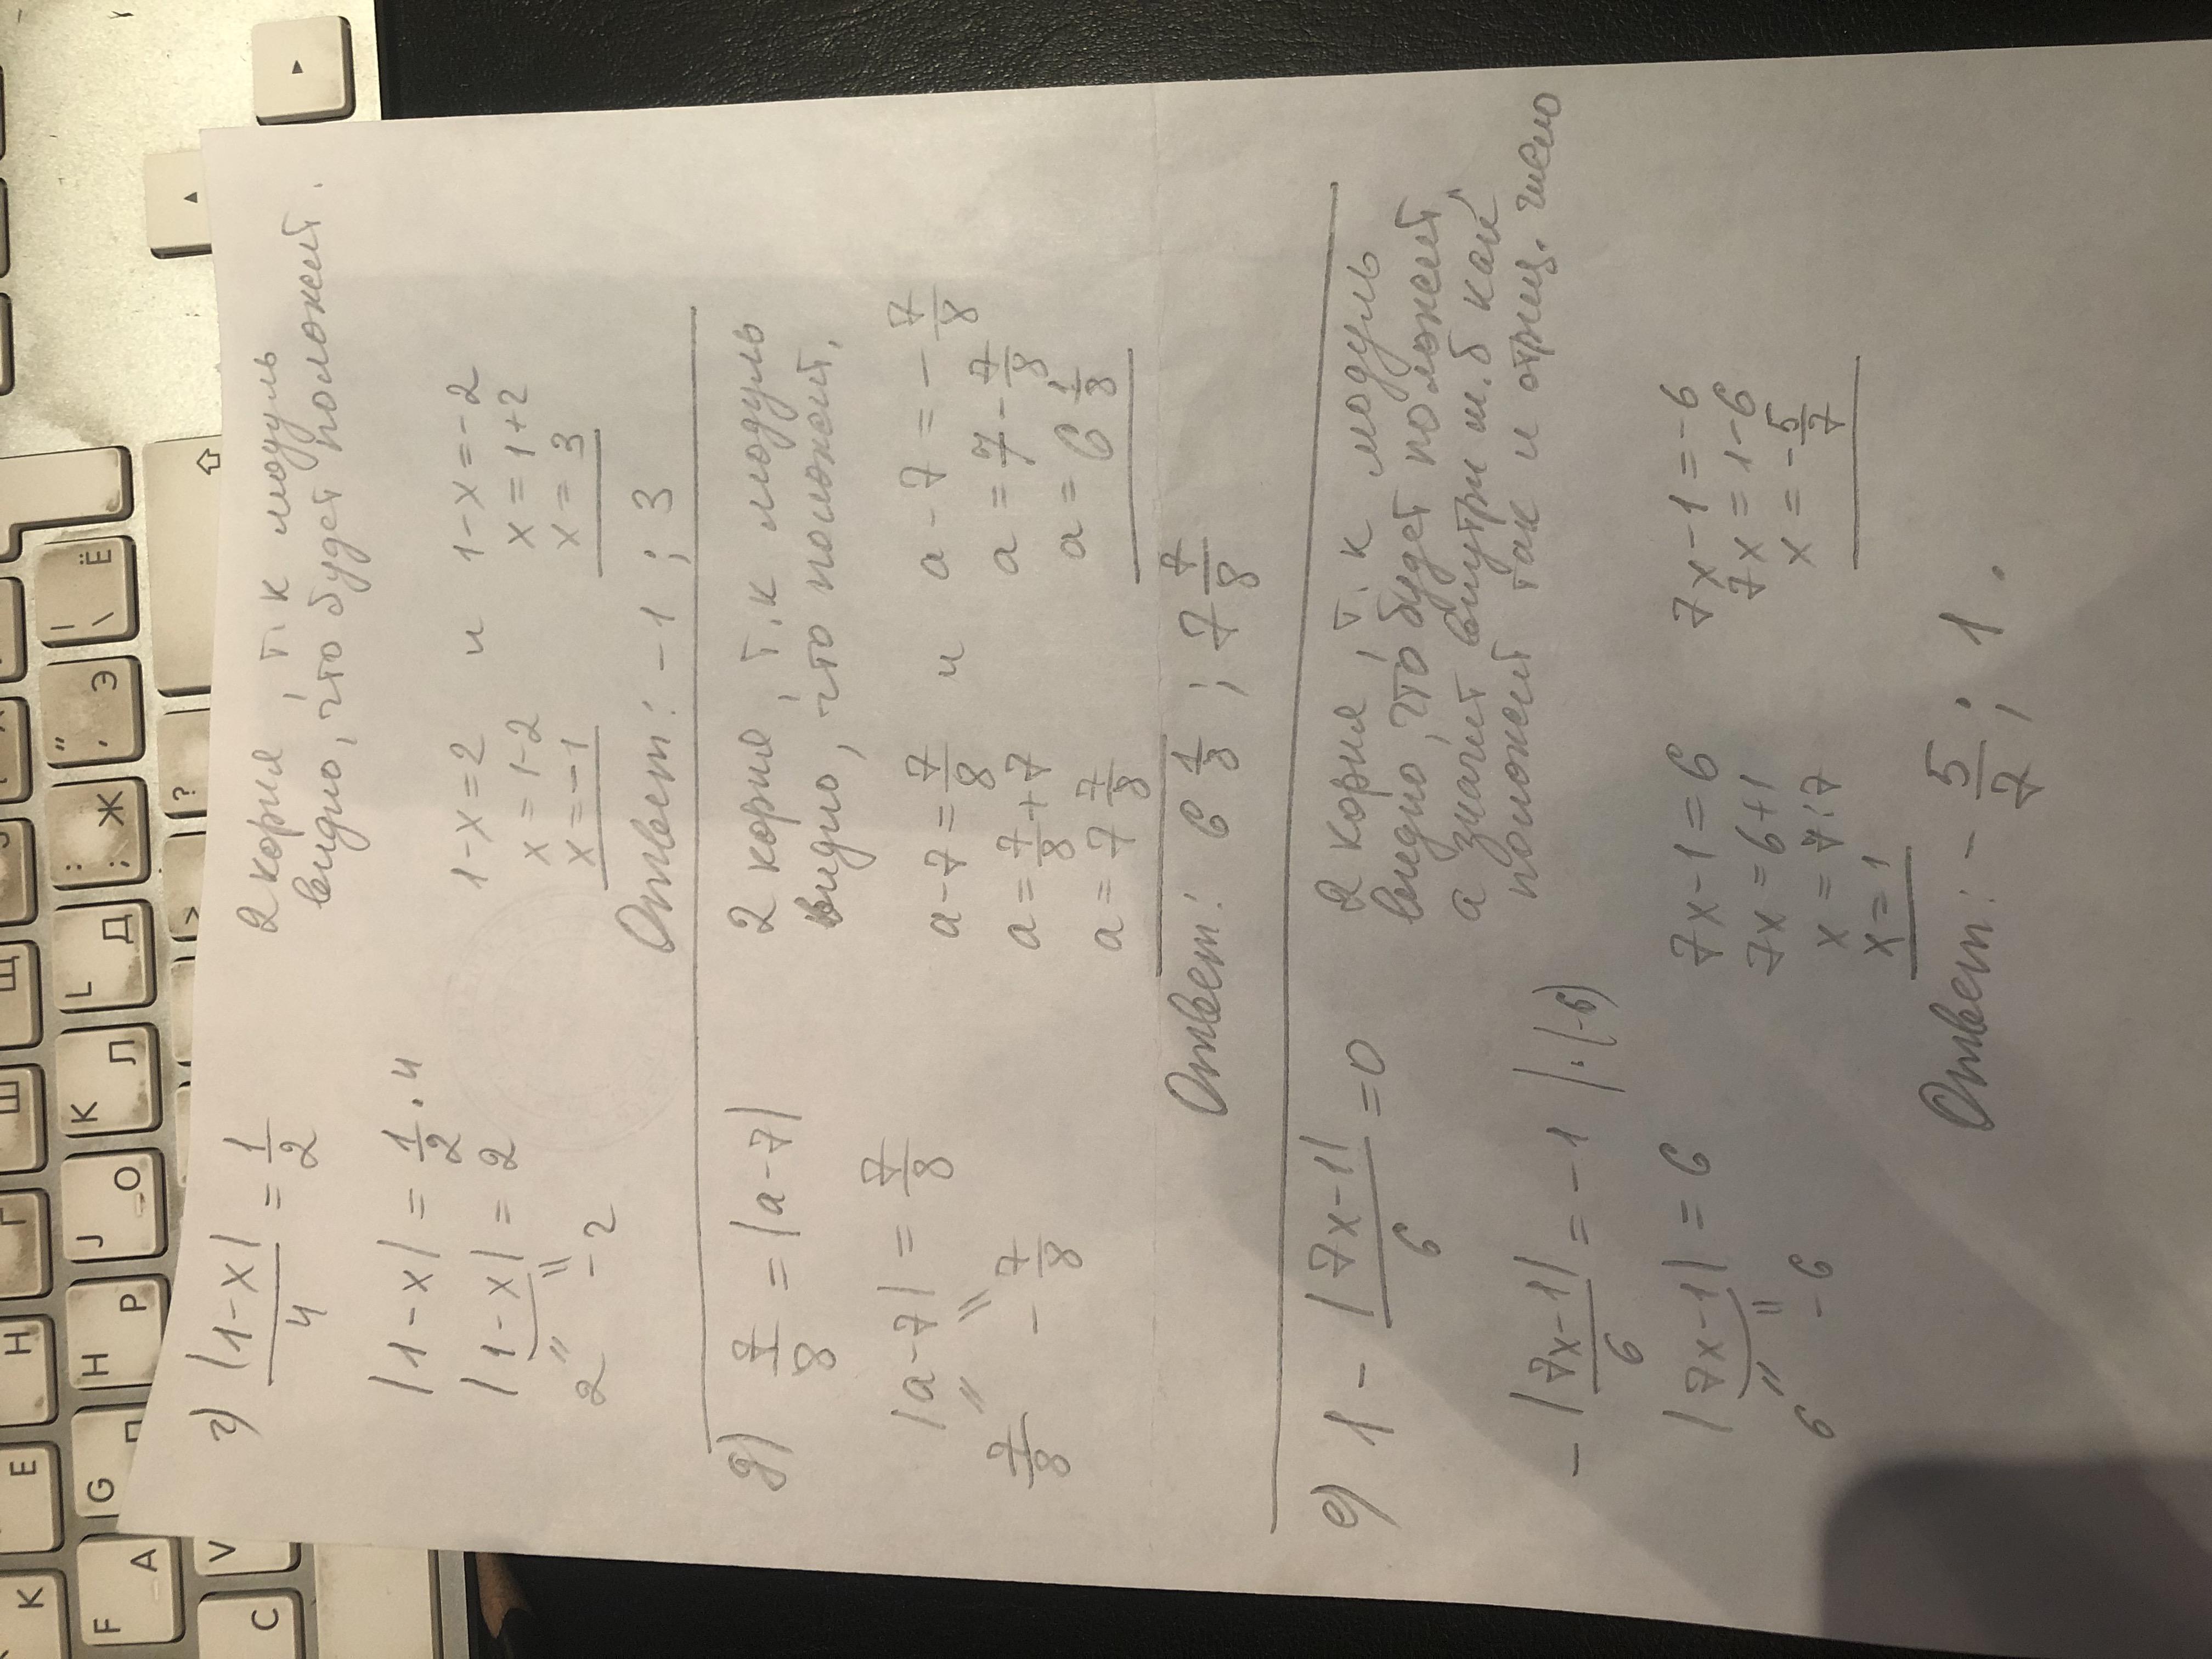 г) |1-x|/4 = 1/2
2 корня, т.к модуль
видно, что будет положит.
|1-x| = 1/2 · 4
|1-x| = 2
2 -2
1-x=2 и 1-x=-2
x=1-2 x=1+2
x=-1 x=3
Ответ: -1 ; 3
д) 7/8 = |a-7|
2 корня, т.к модуль
видно, что положит.
|a-7| = 7/8
7/8 -7/8
a-7=7/8 и a-7=-7/8
a=7/8+7 a=7-7/8
a=7 7/8 a=6 1/8
Ответ: 6 1/8 ; 7 7/8
е) 1 - |7x-1|/6 =0
2 корня, т.к модуль
видно, что будет положит,
а значит внутри м.б как
положит так и отриц. число
- |7x-1|/6 = -1 |·(-6)
|7x-1| = 6
6 -6
7x-1=6 7x-1=-6
7x=6+1 7x=1-6
x=7:7 x=-5/7
x=1
Ответ: -5/7 ; 1.
K E H Г Ш Щ
F A G П H P J O K Л L Д : ; Ж " ' Э | \ Ё
C V > ?